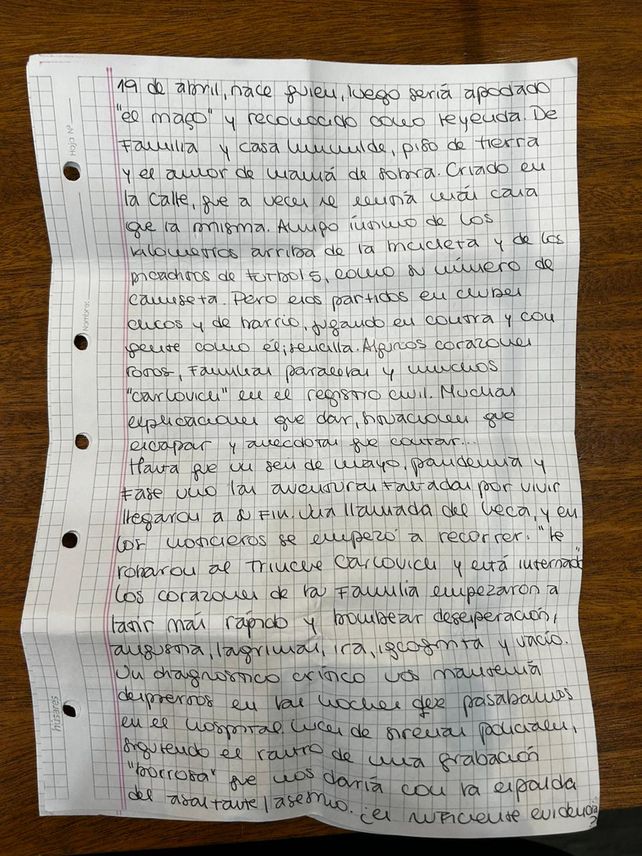 19 de abril, nace quien, luego seria apodado
"el mago" y reconocido como leyenda. De
familia y casa humilde, piso de tierra
y el amor de mamá de sobra. Criado en
la calle, que a veces se reunía más cara
que la misma. Amigo íntimo de los
kilometros arriba de la bicicleta y de los
picaditos de futbol 5, como su número de
camiseta. Pero esos partidos en clubes
chicos y de barrio, jugando en contra y con
gente como el; sencilla. Algunos corazones
rotos, familias paralelas y muchos
"carlovich" en el registro civil. Muchas
explicaciones que dar, situaciones que
escapar y anecdotas que contar...
Hasta que un seis de mayo, pandemia y
fase uno las aventuras faltadas por vivir
llegaron a su fin. Una llamada del heca, y en
los noticieros se empezó a recorrer: "le
robaron al Trinche Carlovich y está internado"
Los corazones de la familia empezaron a
latir más rápido y bombear desesperación,
angustia, lagrimas, ira, incognita y vacío.
Un diagnostico critico nos mantenía
despiertos en las noches que pasabamos
en el hospital. Luces de sirenas policiales,
siguiendo el rastro de una grabación
"borrosa" que nos daría con la espalda
del asaltante/asesino. ¿es suficiente evidencia
?
Hoja Nº
Nombre: